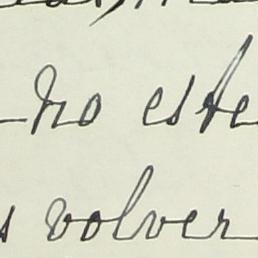 no este
volver